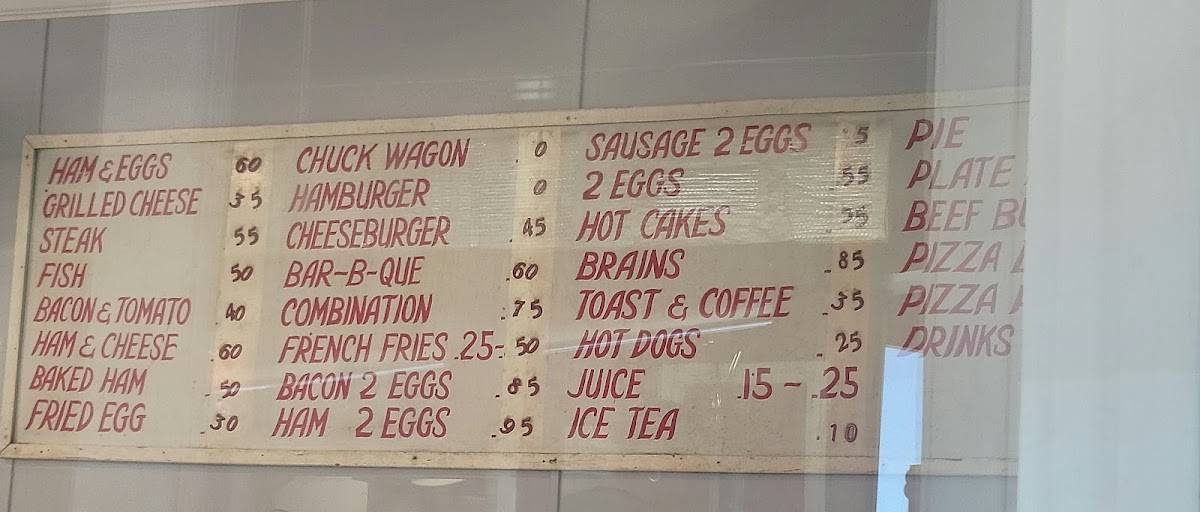 HAM & EGGS 60
GRILLED CHEESE 35
STEAK 55
FISH 50
BACON & TOMATO 40
HAM & CHEESE .60
BAKED HAM .50
FRIED EGG .30
CHUCK WAGON . 0
HAMBURGER 0
CHEESEBURGER .45
BAR-B-QUE .60
COMBINATION .75
FRENCH FRIES .25-.50
BACON 2 EGGS .85
HAM 2 EGGS .95
SAUSAGE 2 EGGS 5
2 EGGS .55
HOT CAKES
BRAINS .85
TOAST & COFFEE .35
HOT DOGS .25
JUICE .15 - .25
ICE TEA .10
PIE
PLATE
BEEF
PIZZA
PIZZA
DRINKS